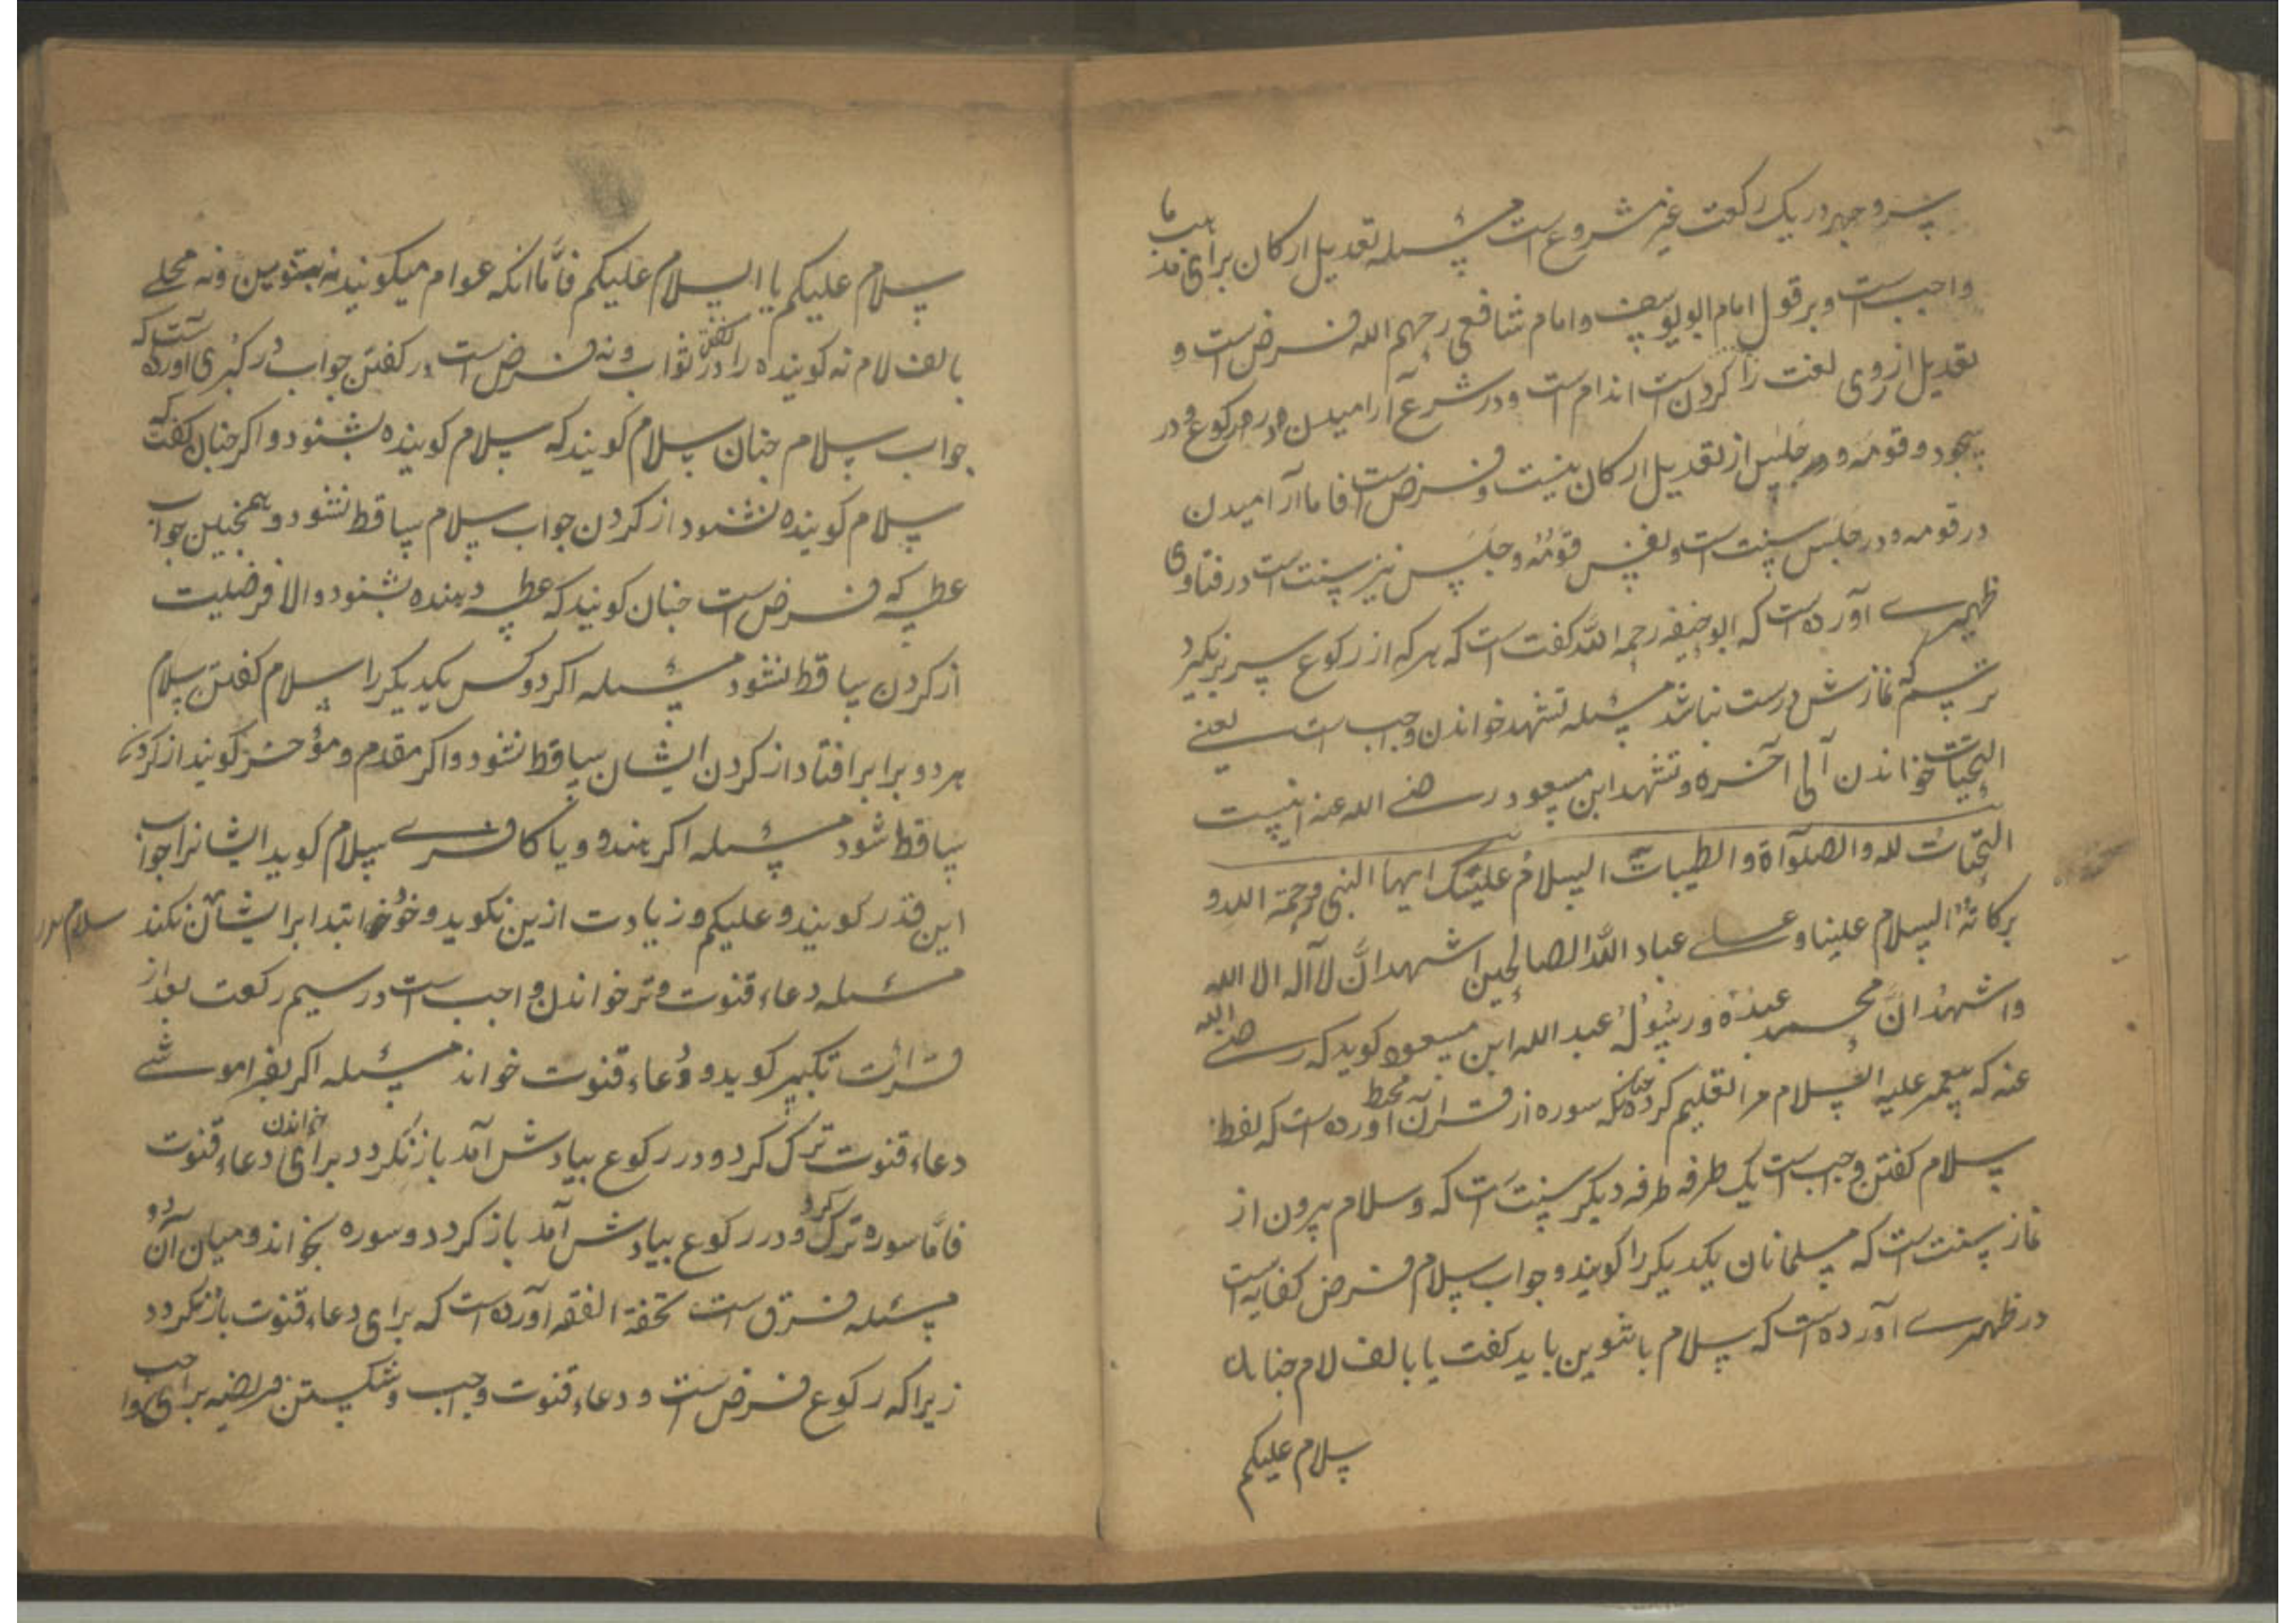 سر و جهر در یک رکعت غیر مشروع است مسئله تعدیل ارکان برای مذهب ما
واجب است و بر قول امام ابو یوسف و امام شافعی رحهم الله فرض است و
تعدیل از روی لغت راست کردن اندام است و در شرع آرامیدن در رکوع و در
سجود و قومه و در جلس از تعدیل ارکان نیست و فرض است فاما آرامیدن
در قومه و در جلس سنت است و نفس قومه و جلس نیز سنت است در فتاوی
ظهیری آورده است که ابو حنیفه رحمه الله کفت است که هر که از رکوع سر برنکیرد
ترسم که نمازش درست نباشد مسئله تشهد خواندن واجب است یعنے
التحیات خواندن الی آخره و تشهد ابن مسعود رضی الله عنه اینست
التحیات لله والصلوآة والطیبات السلام علیک ایها النبی ورحمة الله و
برکاته السلام علینا وعلی عباد الله الصالحین اشهد ان لا آله الا الله
واشهد ان محمد عبده ورسوله عبد الله ابن مسعود کوید که رضی الله
عنه که پیغمبر علیه السلام مرا تعلیم کرد چنانکه سوره از قرآن در محیط آورده است که لفظ
سلام کفتن واجب است یک طرفه طرفه دیکر سنت است که و سلام بیرون از
نماز سنت است که مسلمانان یکدیکر را کویند و جواب سلام فرض کفایه است
در ظهیری آورده است که سلام با تنوین باید کفت یا با الف لام جنانک
سلام علیکم
سلام علیکم یا السلام علیکم فاما انکه عوام میکویند نه بتنوین و نه محلے
بالف لام نه کوینده را در کفتن ثواب و نه فرض است در کفتن جواب در کبری آورده است که
جواب سلام جنان سلام کویند که سلام کوینده بشنود و اکر جنان کفت که
سلام کوینده نشنود از کردن جواب سلام ساقط نشود و همچنین جواب
عطسه که فرض است جنان کویند که عطسه دهنده بشنود والا فرضلیت
از کردن ساقط نشود مسئله اکر دو کس یکدیکر را سلام کفتن سلام
هر دو برابر افتاد از کردن ایشان ساقط نشود و اکر مقدم و مؤخر کویند از کردن
ساقط شود مسئله اکر هندو و یا کافرے سلام کوید ایشانرا جواب
این قدر کویند و علیکم و زیادت ازین نکوید و خود ابتدا بر ایشان نکند سلام
مسئله دعاء قنوت وتر خواندن واجب است در سیم رکعت بعد از
قرائت تکبیر کوید و دعاء قنوت خواند مسئله اکر بفراموشے
دعاء قنوت ترک کرد و در رکوع بیادش آمد باز نکردد برای خواندن دعاء قنوت
فاما سوره ترک کرد و در رکوع بیادش آمد باز کردد و سوره بخواند و میان آن دو
مسئله فرق است تحفة الفقه آورده است که برای دعاء قنوت باز نکردد
زیراکه رکوع فرض است و دعاء قنوت واجب و شکستن فریضه برای واجب